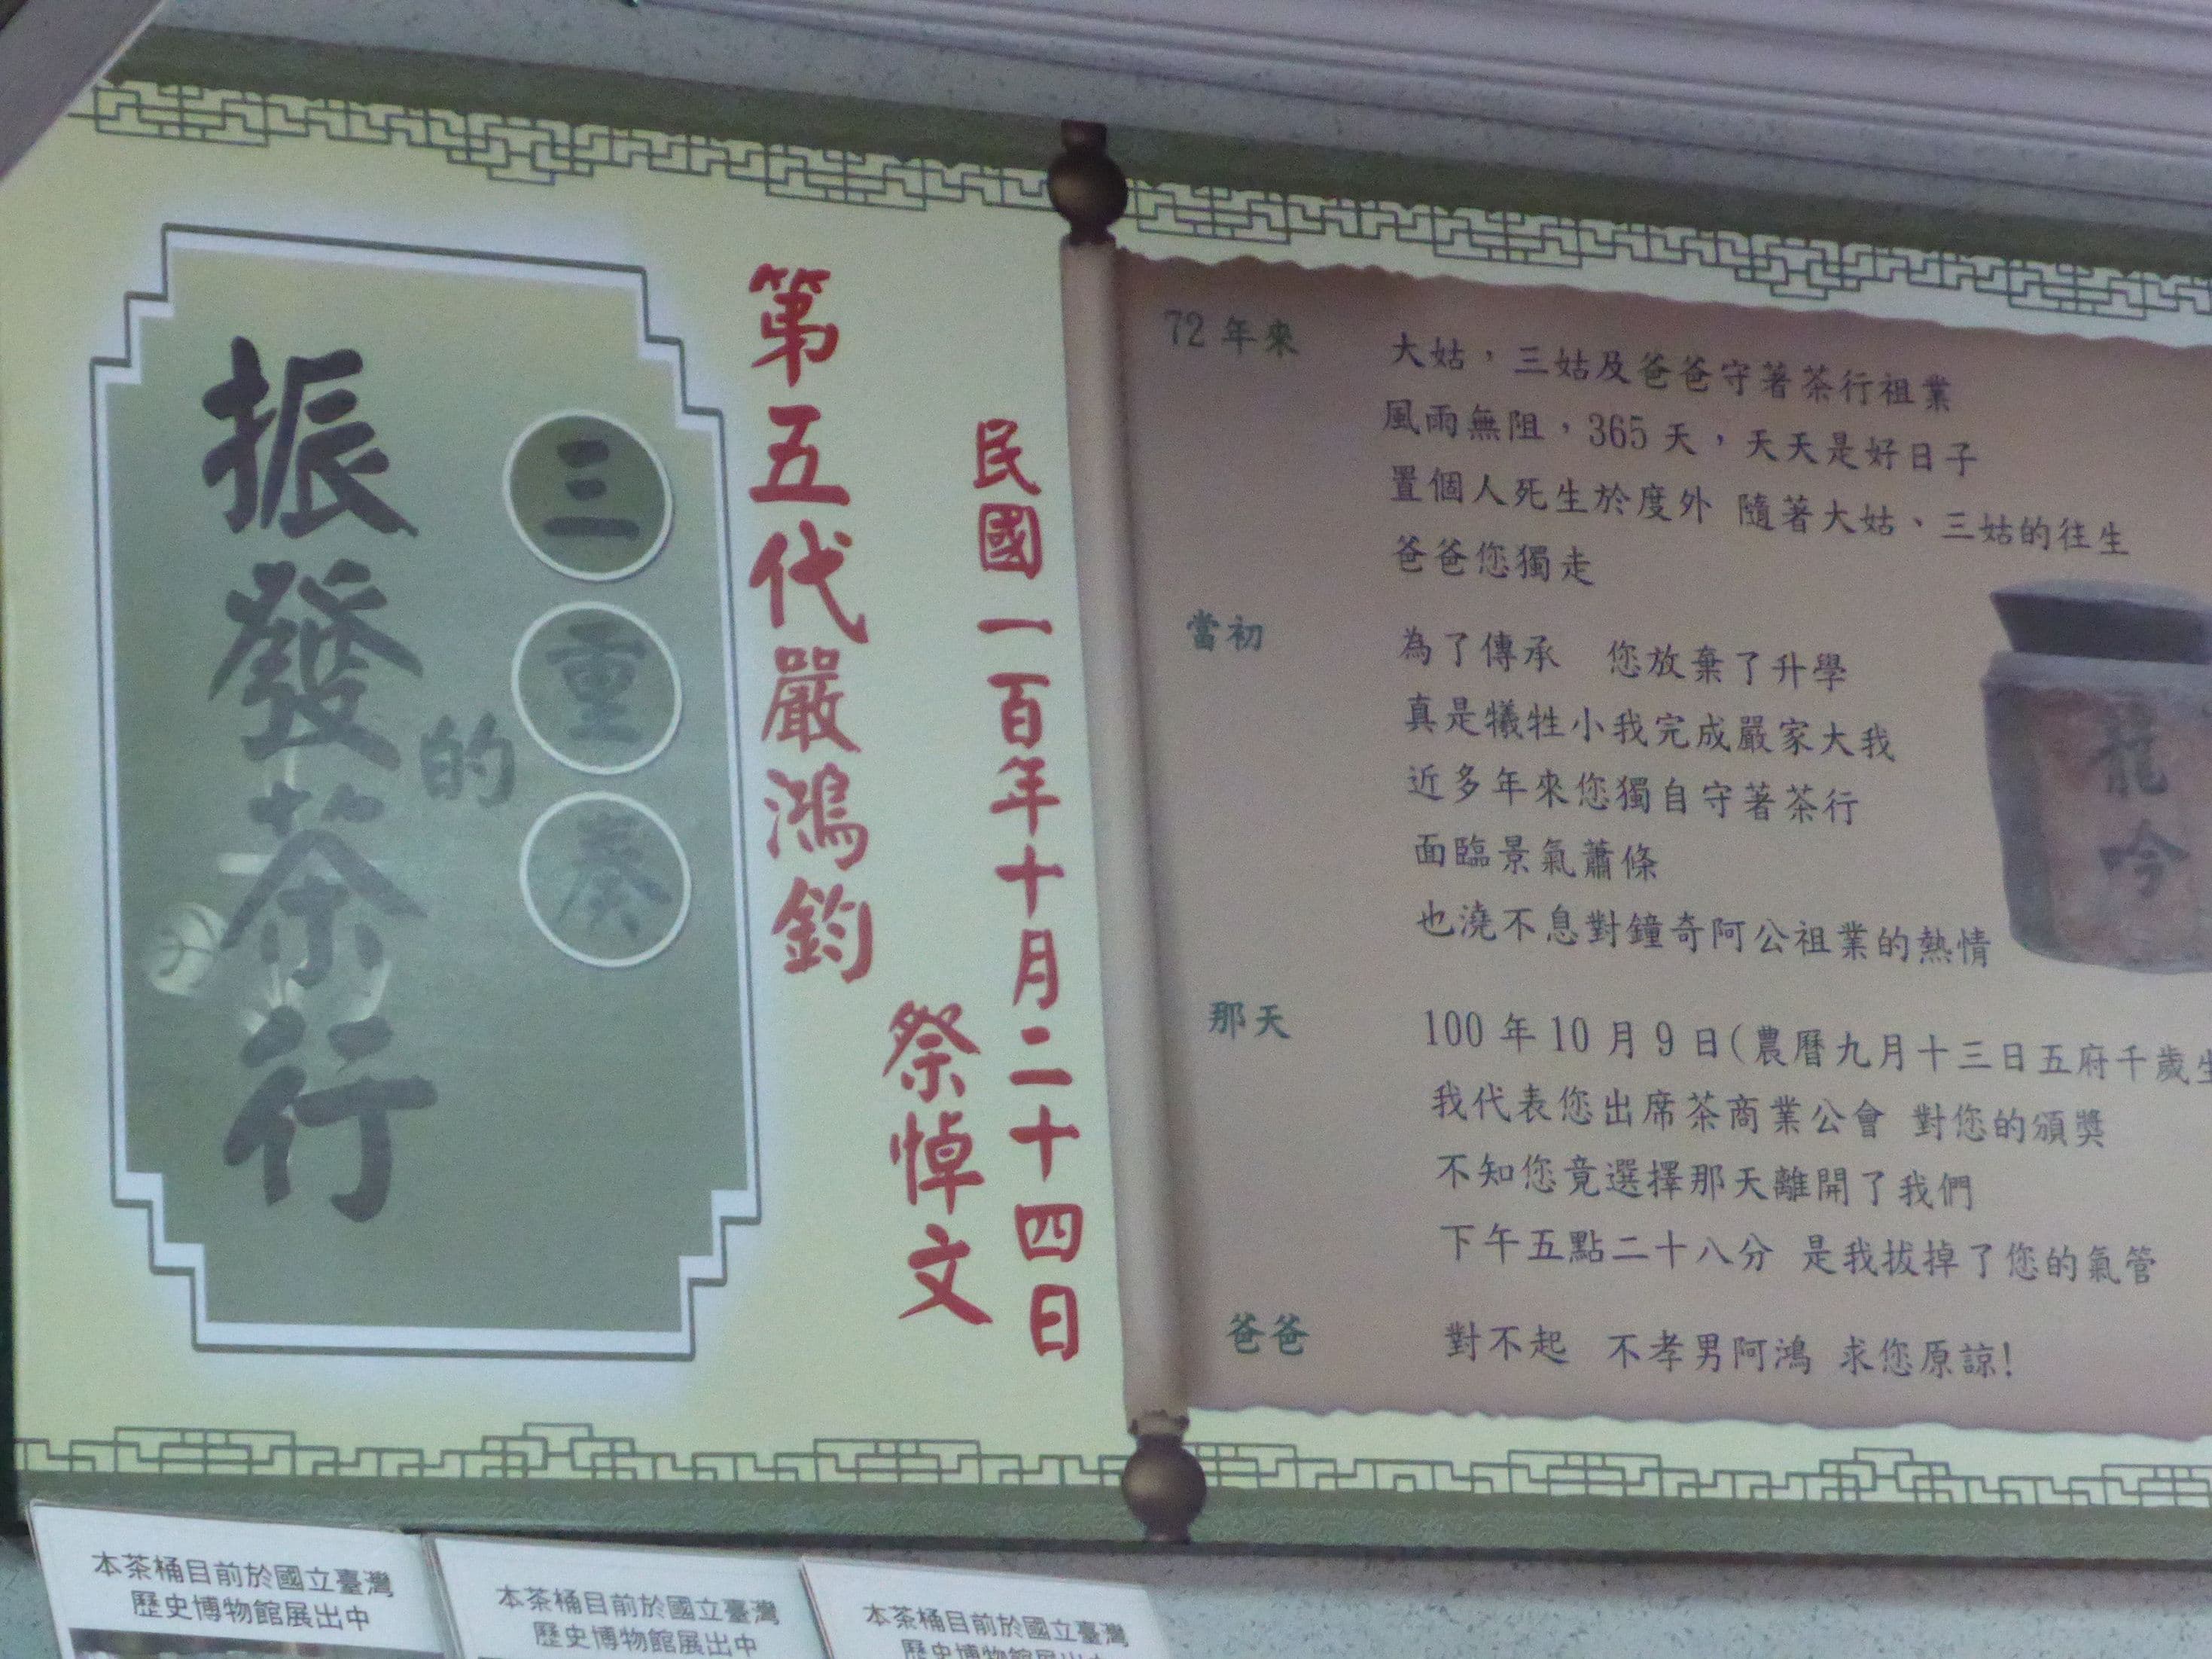 三重奏
的
振發茶行
第五代嚴鴻鈞
民國一百年十月二十四日
祭悼文
72年來 大姑，三姑及爸爸守著茶行祖業
風雨無阻，365天，天天是好日子
置個人死生於度外 隨著大姑、三姑的往生
爸爸您獨走
當初 為了傳承 您放棄了升學
真是犧牲小我完成嚴家大我
近多年來您獨自守著茶行
面臨景氣蕭條
也澆不息對鐘奇阿公祖業的熱情
龍吟
那天 100年10月9日(農曆九月十三日五府千歲生
我代表您出席茶商業公會 對您的頒獎
不知您竟選擇那天離開了我們
下午五點二十八分 是我拔掉了您的氣管
爸爸 對不起 不孝男阿鴻 求您原諒!
本茶桶目前於國立臺灣
歷史博物館展出中
本茶桶目前於國立臺灣
歷史博物館展出中
本茶桶目前於國立臺灣
歷史博物館展出